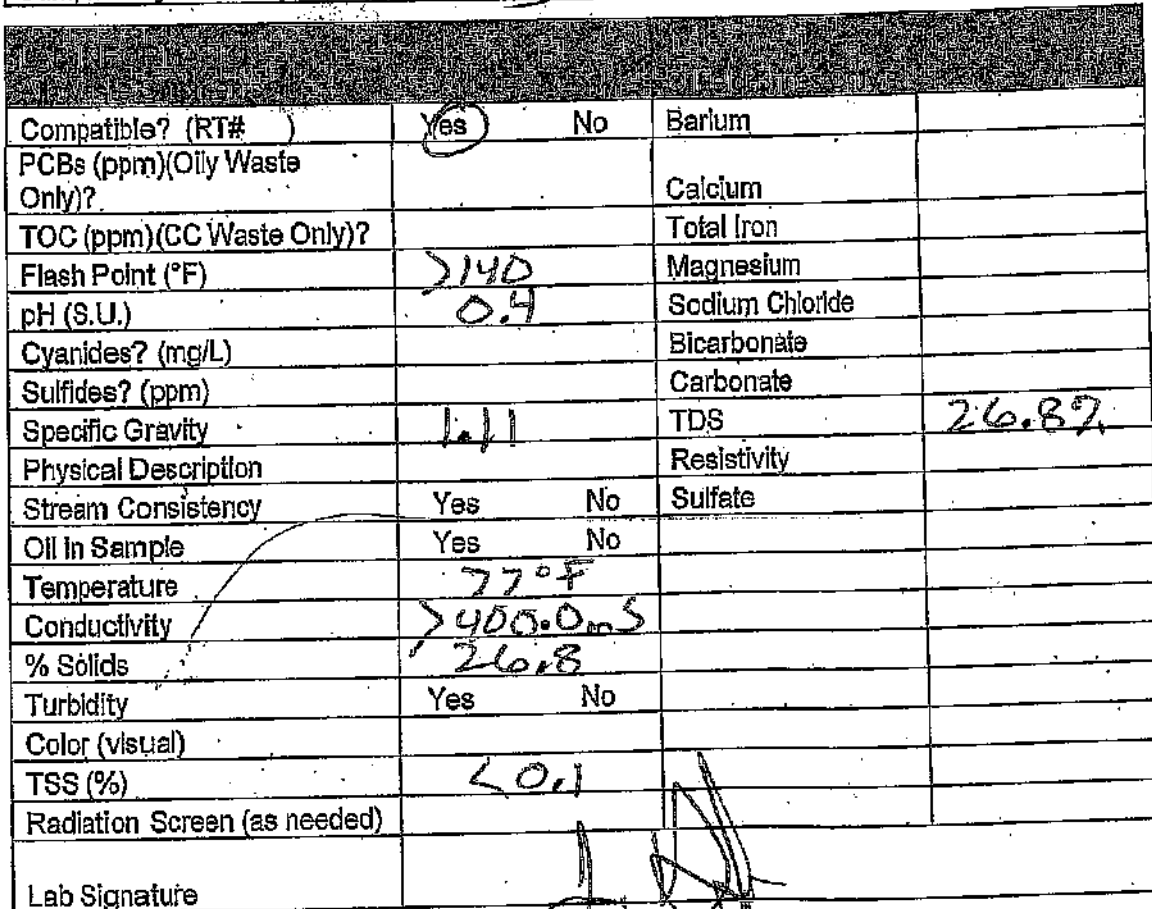 Compatible? (RT# ) Yes No Barium
PCBs (ppm)(Oily Waste
Only)? Calcium
TOC (ppm)(CC Waste Only)? Total Iron
Flash Point (°F) >140 Magnesium
pH (S.U.) 0.4 Sodium Chloride
Cyanides? (mg/L) Bicarbonate
Sulfides? (ppm) Carbonate
Specific Gravity 1.11 TDS 26.8%
Physical Description Resistivity
Stream Consistency Yes No Sulfate
Oil in Sample Yes No
Temperature 77°F
Conductivity >400.0mS
% Solids 26.8
Turbidity Yes No
Color (visual)
TSS (%) <0.1
Radiation Screen (as needed)
Lab Signature